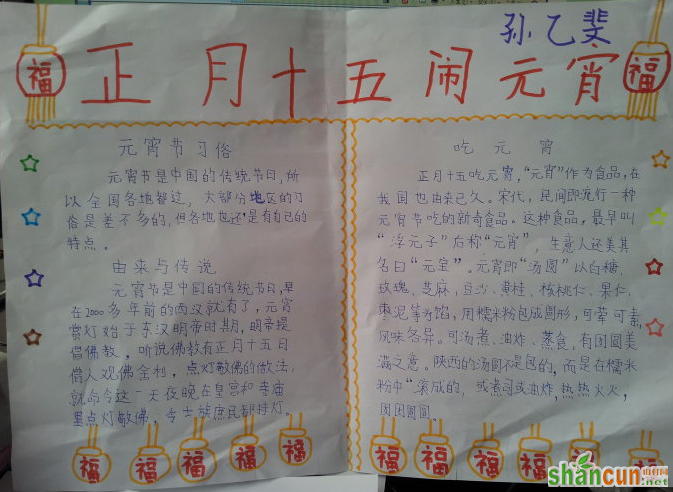 孙乙斐
福
正月十五闹元宵
福
元宵节习俗
元宵节是中国的传统节日,所
以全国各地都过,大部分地区的习
俗是差不多的,但各地也还是有自己的
特点。
由来与传说
元宵节是中国的传统节日,早
在2000多年前的西汉就有了,元宵
赏灯始于东汉明帝时期,明帝提
倡佛教,听说佛教有正月十五日
僧人观佛舍利,点灯敬佛的做法,
就命令这一天夜晚在皇宫和寺庙
里点灯敬佛,令士族庶民都挂灯。
吃元宵
正月十五吃元宵,“元宵”作为食品,在
我国也由来已久。宋代,民间即流行一种
元宵节吃的新奇食品。这种食品,最早叫
“浮元子”后称“元宵”,生意人还美其
名曰“元宝”。元宵即“汤圆”以白糖、
玫瑰、芝麻、豆沙、黄桂、核桃仁、果仁、
枣泥等为馅,用糯米粉包成圆形,可荤可素,
风味各异。可汤煮、油炸、蒸食,有团圆美
满之意。陕西的汤圆不是包的,而是在糯米
粉中“滚成的,或煮司或油炸,热热火火,
团团圆圆。
福 福 福 福 福 福 福 福 福 福 福
shancun
.net